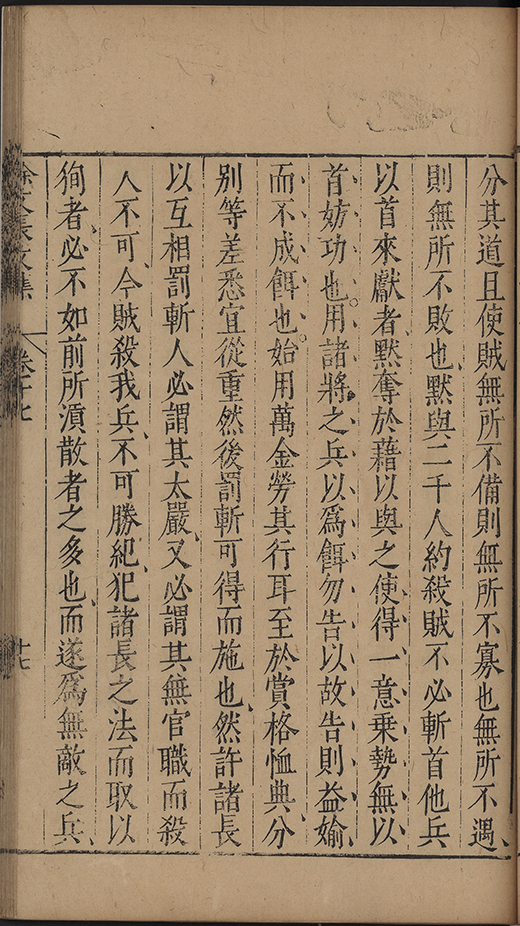 分其道且使賊無所不備則無所不寡也無所不遇、
則無所不敗也、默與二千人約殺賊不必斬首他兵
以首來獻者、默奪於藉以與之、使得一意乗勢、無以
首妨功也。用諸將之兵以爲餌、勿告以故、告則益媮、
而不成餌也。始用萬金勞其行耳至於賞格恤典、分
別等差悉宜從重然後罰斬可得而施也、然許諸長
以互相罰斬人必謂其太嚴、又必謂其無官職而殺
人不可、今賊殺我兵、不可勝紀、犯諸長之法而取以
狥者、必不如前所湏散者之多也、而遂爲無敵之兵、
徐文長文集
卷十七
十七